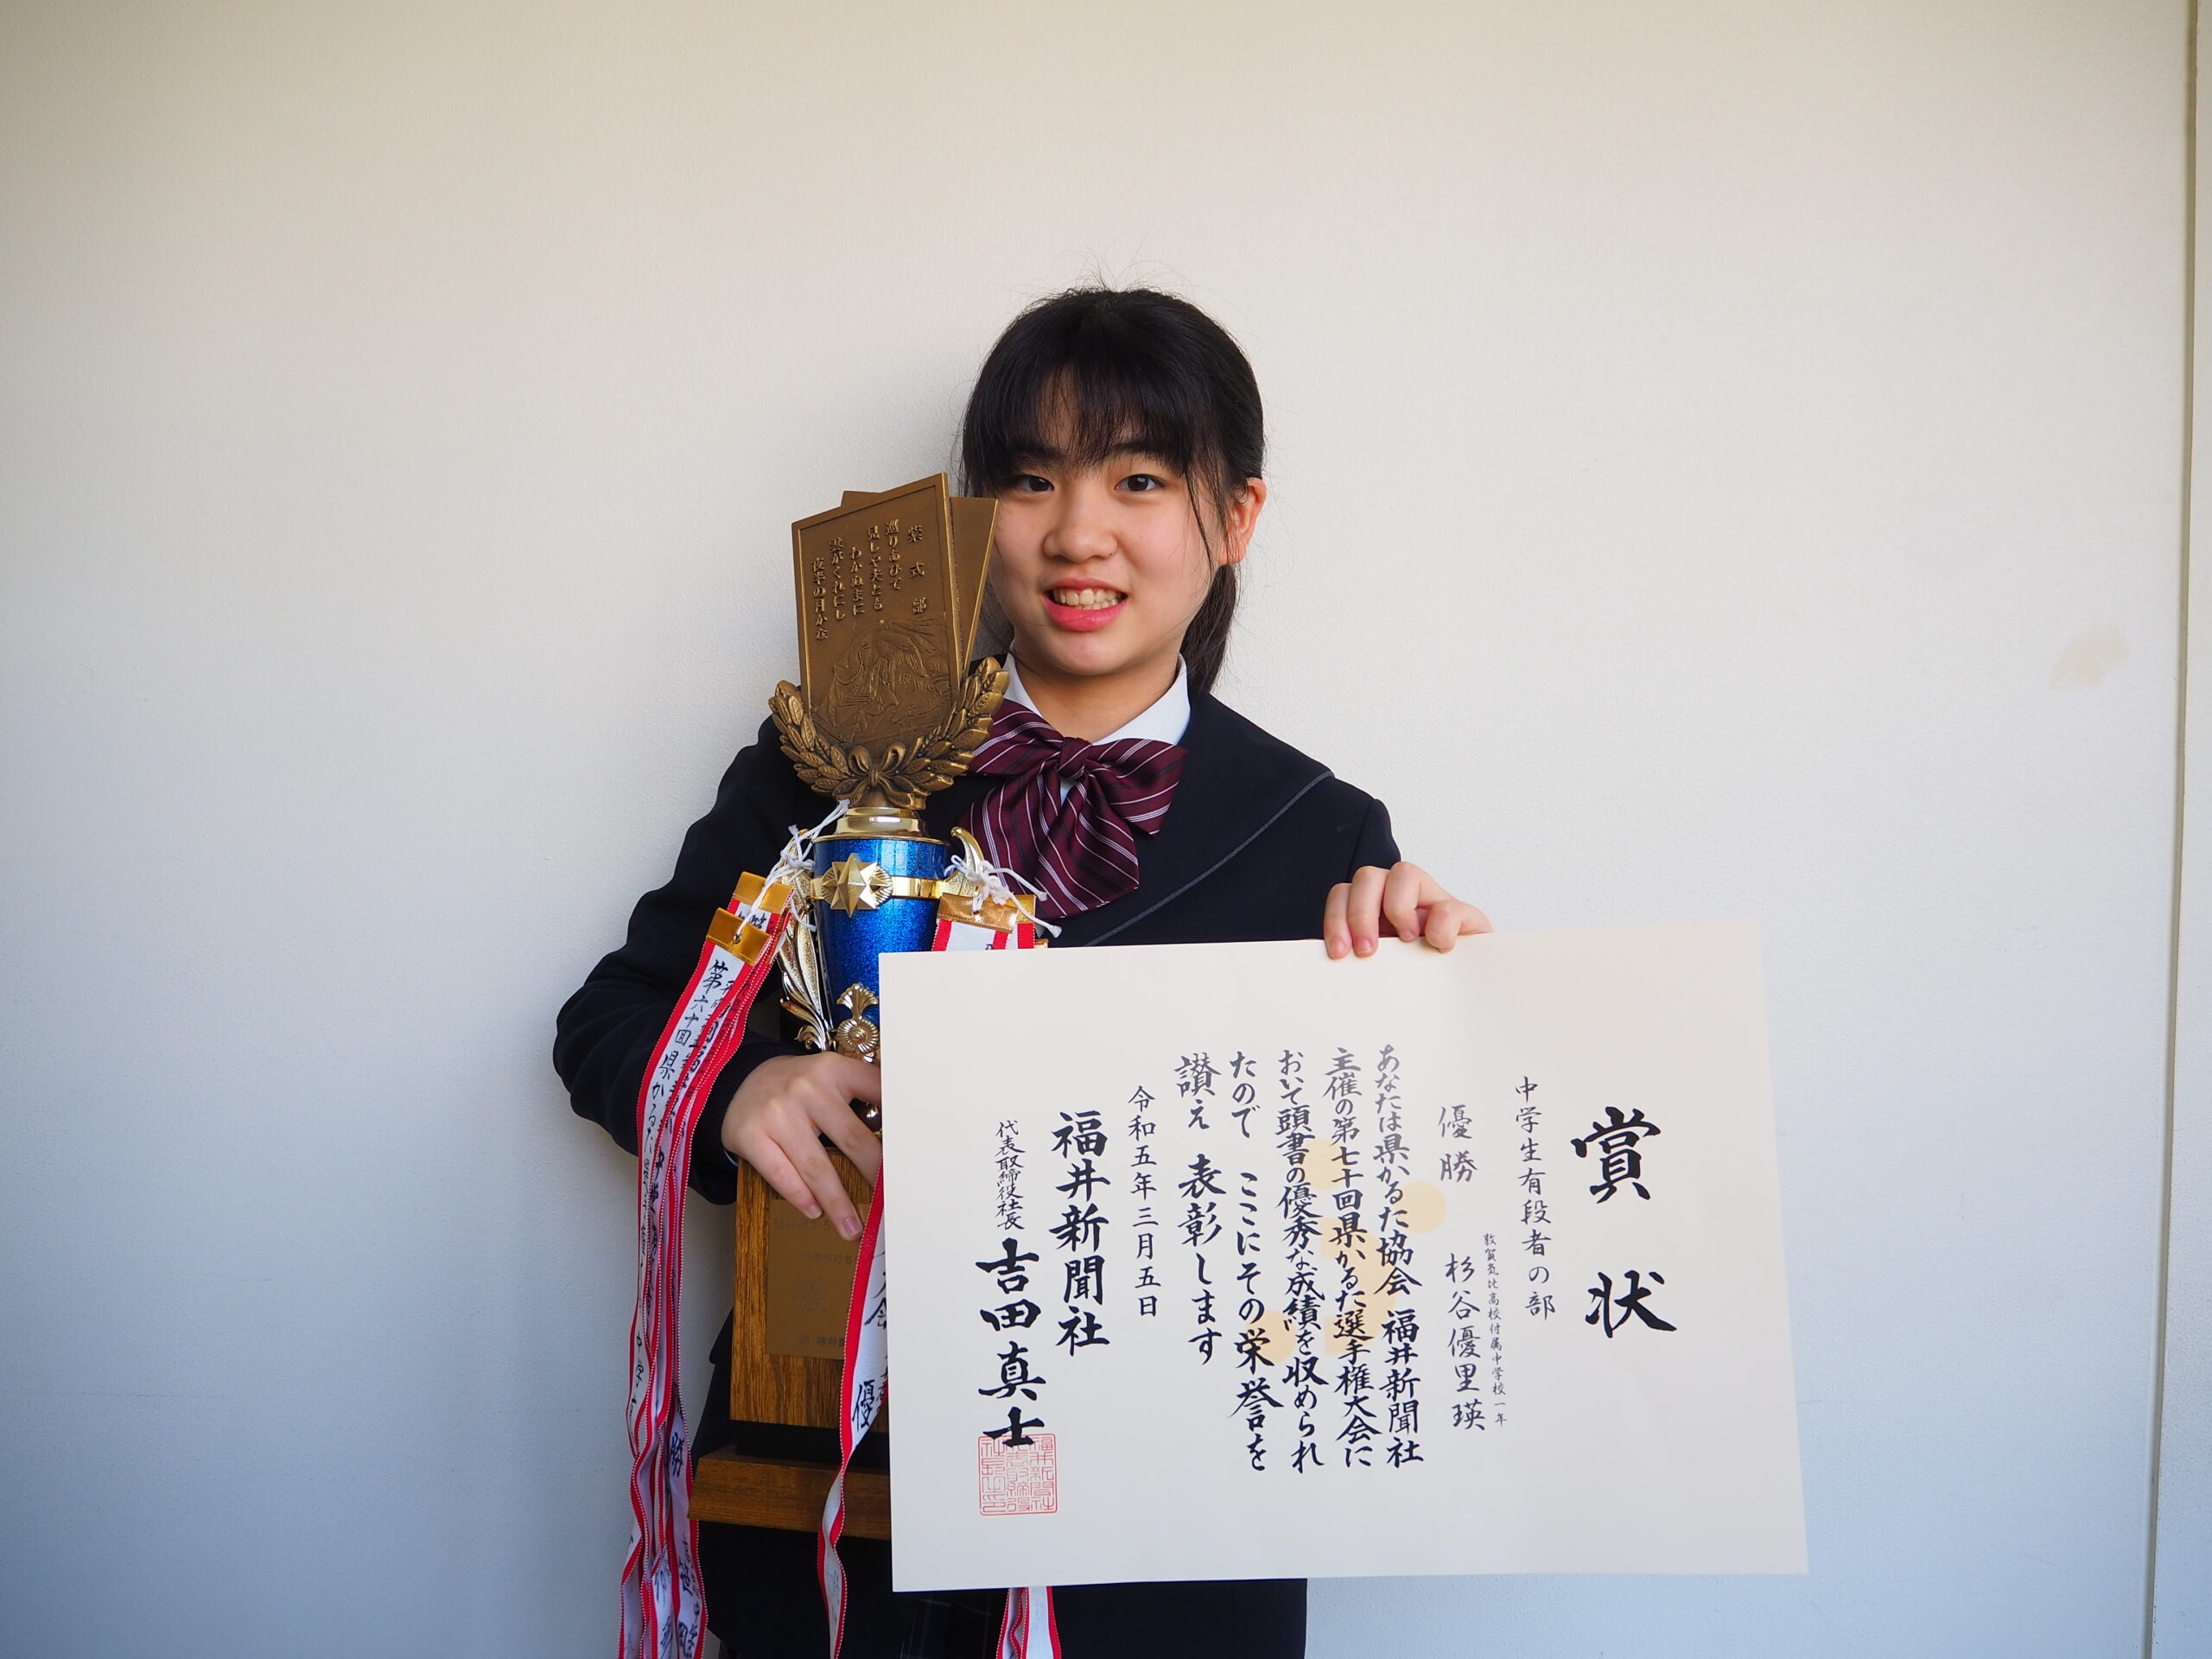 賞状
中学生有段者の部
優勝
敦賀気比高校付属中学校一年
杉谷優里瑛
あなたは県かるた協会 福井新聞社
主催の第七十回県かるた選手権大会に
おいて頭書の優秀な成績を収められ
たので ここにその栄誉を
讃え 表彰します
令和五年三月五日
福井新聞社
代表取締役社長 吉田真士
紫式部
巡りあひて
見しや夫とも
わかぬまに
雲がくれにし
夜半の月かな
第六十回県かるた
優